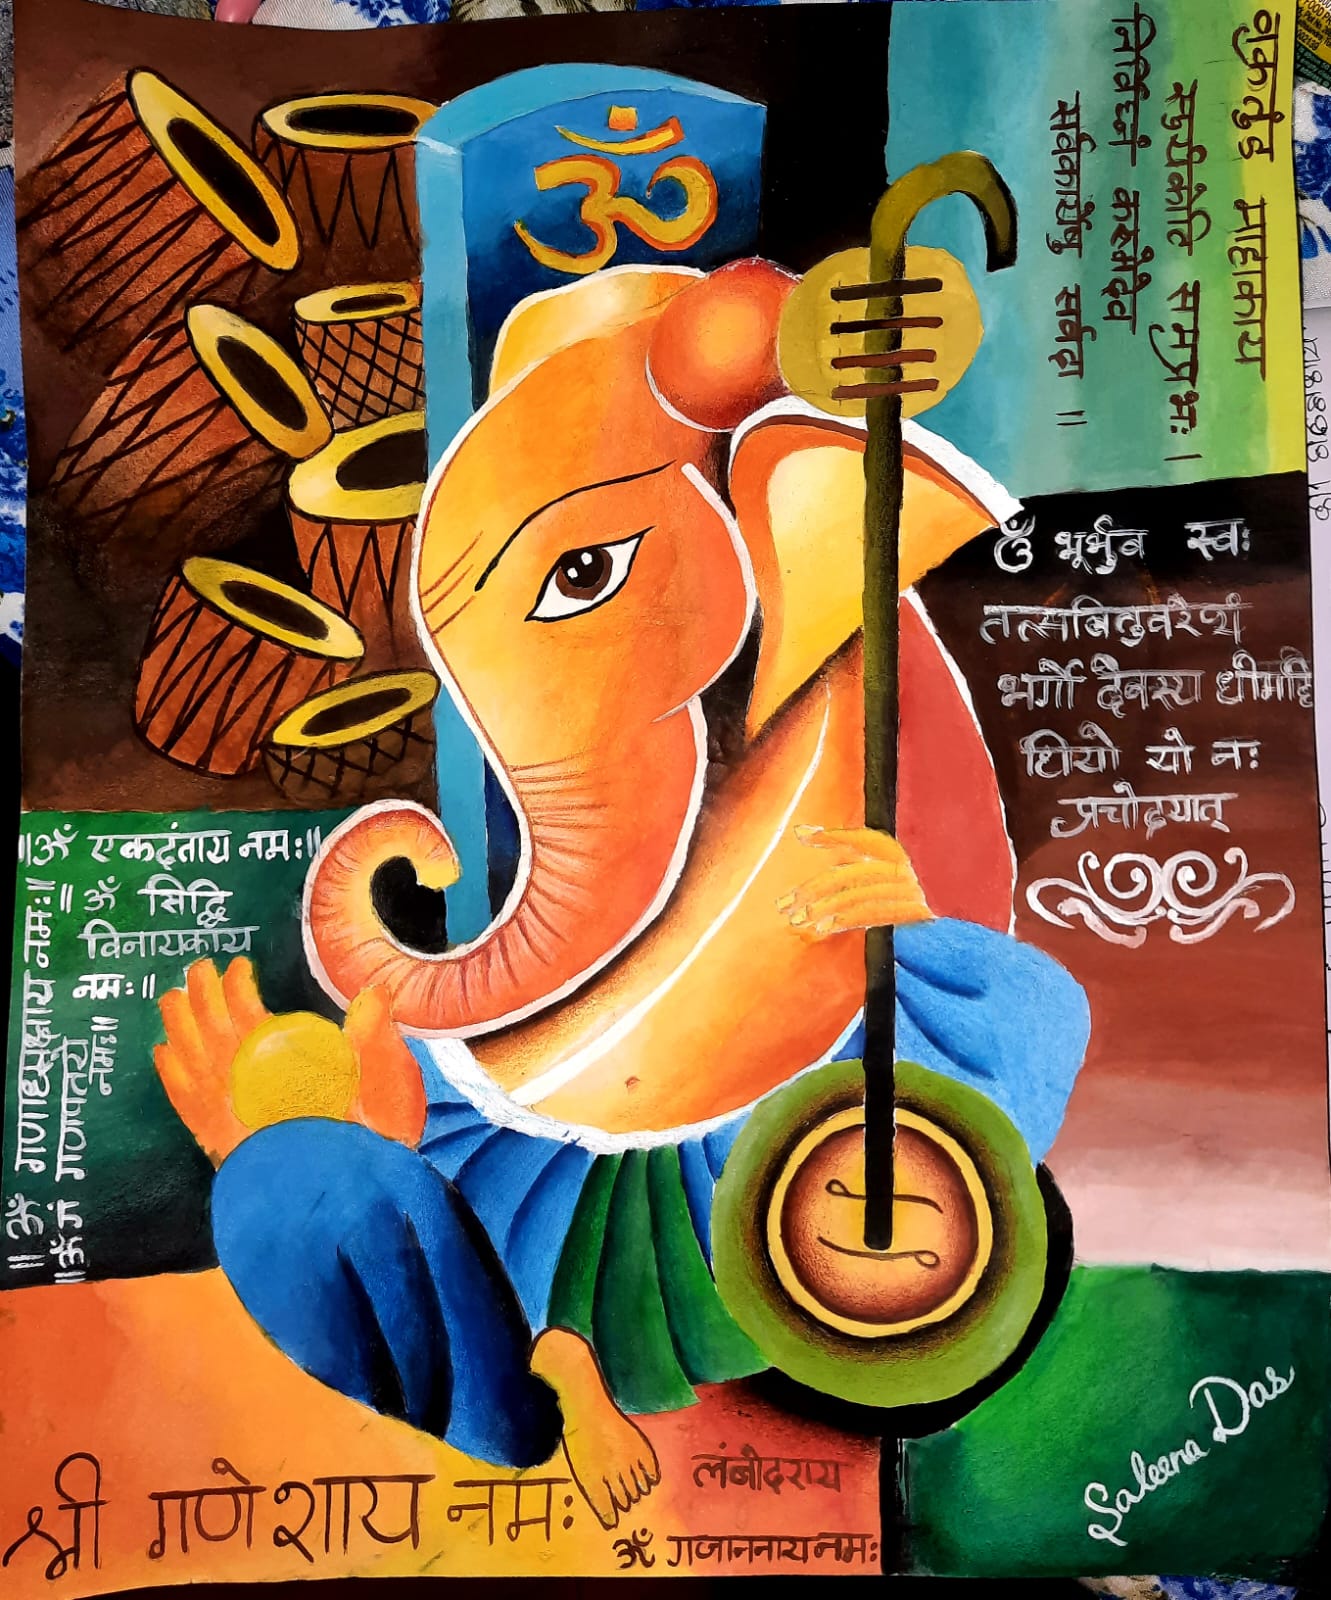 ॐ
वक्रतुंड माहाकाय
सूर्यकोटि सामुप्रभः ।
निर्विध्नं करूमेदेव
सर्वकार्येषु सर्वदा ॥
ॐ भूर्भुव स्वः
तत्सबितुवरेण्यं
भर्गो देवस्य धीमहि
धियो यो नः
प्रचोदयात्
॥ॐ एकदंताय नमः॥
॥ॐ सिद्धि
विनायकाय
नमः॥
॥ॐ गणाध्यक्षाय नमः॥
॥ॐ गं गणपतये
नमः॥
श्री गणेशाय नमः
लंबोदराय
ॐ गजाननाय नमः
Saleena Das